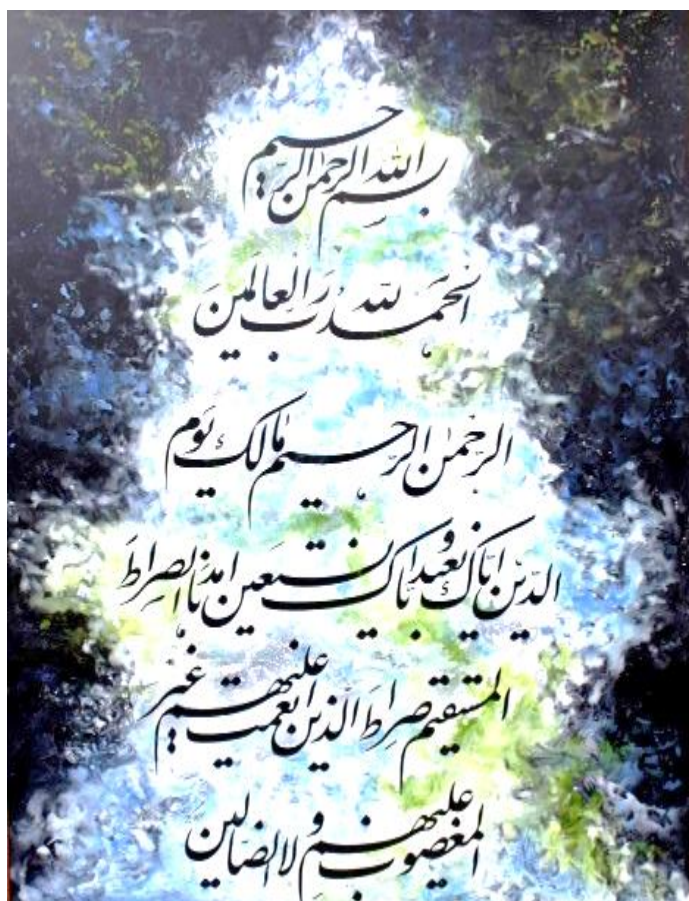 بسم الله الرحمن الرحيم
الحمد لله رب العالمين
الرحمن الرحيم مالك يوم
الدين اياك نعبد و اياك نستعين اهدنا الصراط
المستقيم صراط الذين انعمت عليهم غير
المغضوب عليهم و لا الضالين